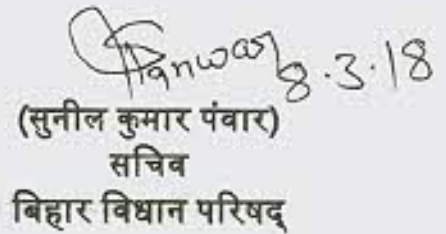 Panwar 8.3.18
(सुनील कुमार पंवार)
सचिव
बिहार विधान परिषद्